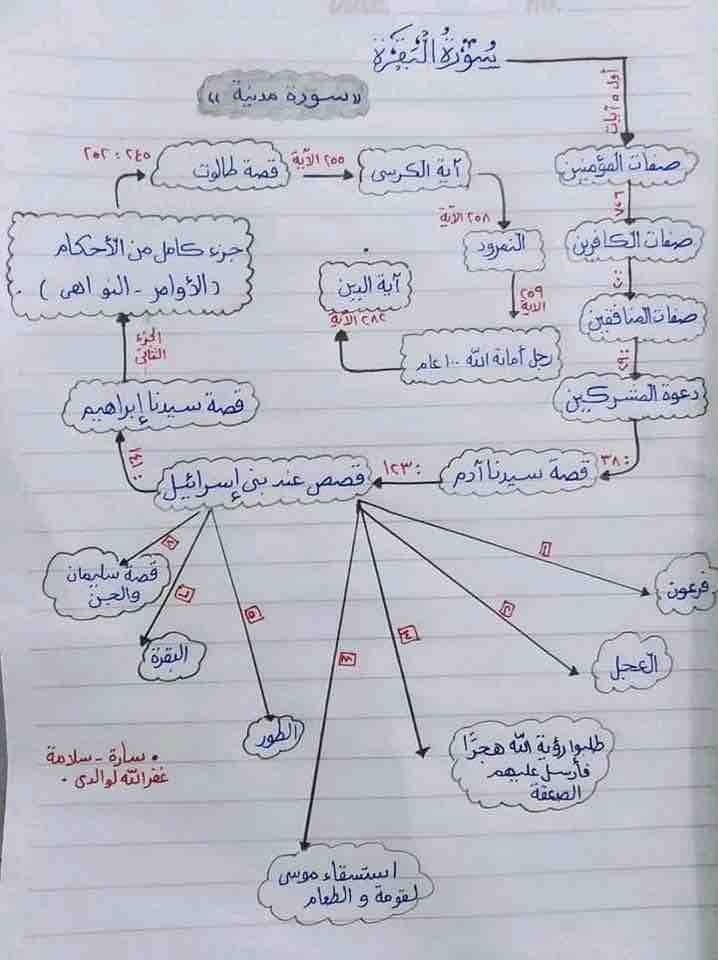 سُورَةُ الْبَقَرَة
«سورة مدنية»
أول ٥ آيات
صفات المؤمنين
٧،٦
صفات الكافرين
٢٠:
صفات المنافقين
٢٩:
دعوة المشركين
٣٨:
قصة سيدنا آدم
١٢٣:
قصص عند بنى إسرائيل
١٤١:
قصة سيدنا إبراهيم
الجزء
الثانى
جزء كامل من الأحكام
(الأوامر - النواهى)
٢٥٢:٢٤٥
قصة طالوت
٢٥٥ الآية
آية الكرسى
٢٥٨ الآية
النمرود
٢٥٩
الآية
رجل أماته الله ١٠٠ عام
آية الدين
٢٨٢ الآية
١
فرعون
٢
العجل
٤
طلبوا رؤية الله هجرًا
فأرسل عليهم
الصعقة
٣
استسقاء موسى
لقومة و الطعام
٥
الطور
٦
البقرة
٧
قصة سليمان
والجن
سارة - سلامة
غفر الله لوالدى